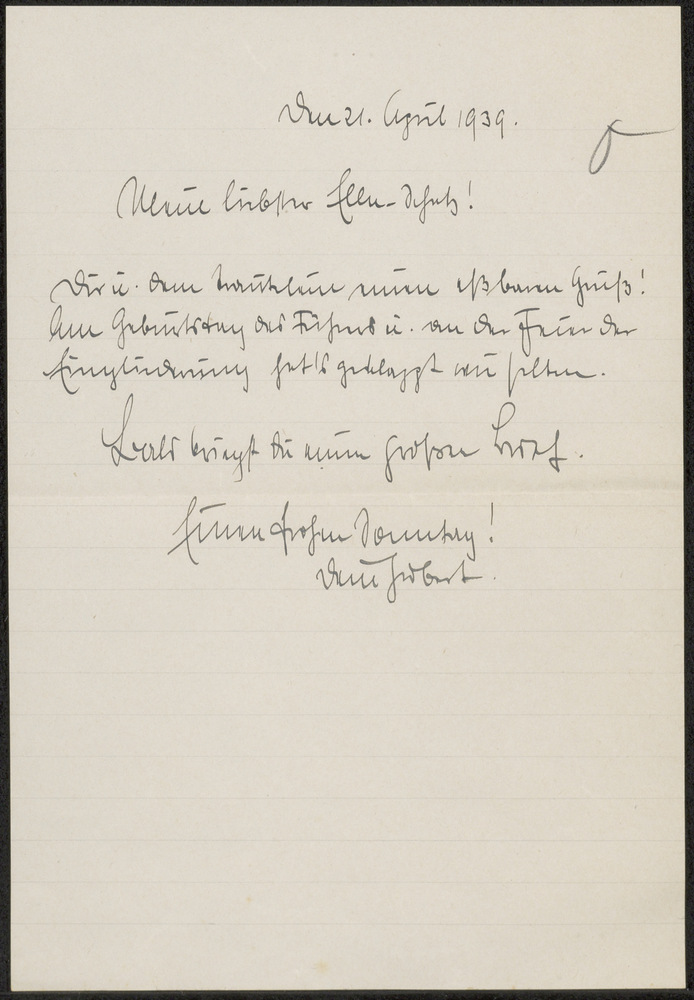 Den 21. April 1939.
Mein liebster Ellen-Schatz!
Dir u. dem Trautelein einen eßbaren Gruß!
Am Geburtstag des Führers u. an der Feier der
Eingliederung hat's geklappt wie selten.
Bald kriegst Du einen großen Brief.
Einen frohen Sonntag!
Dein Hubert.